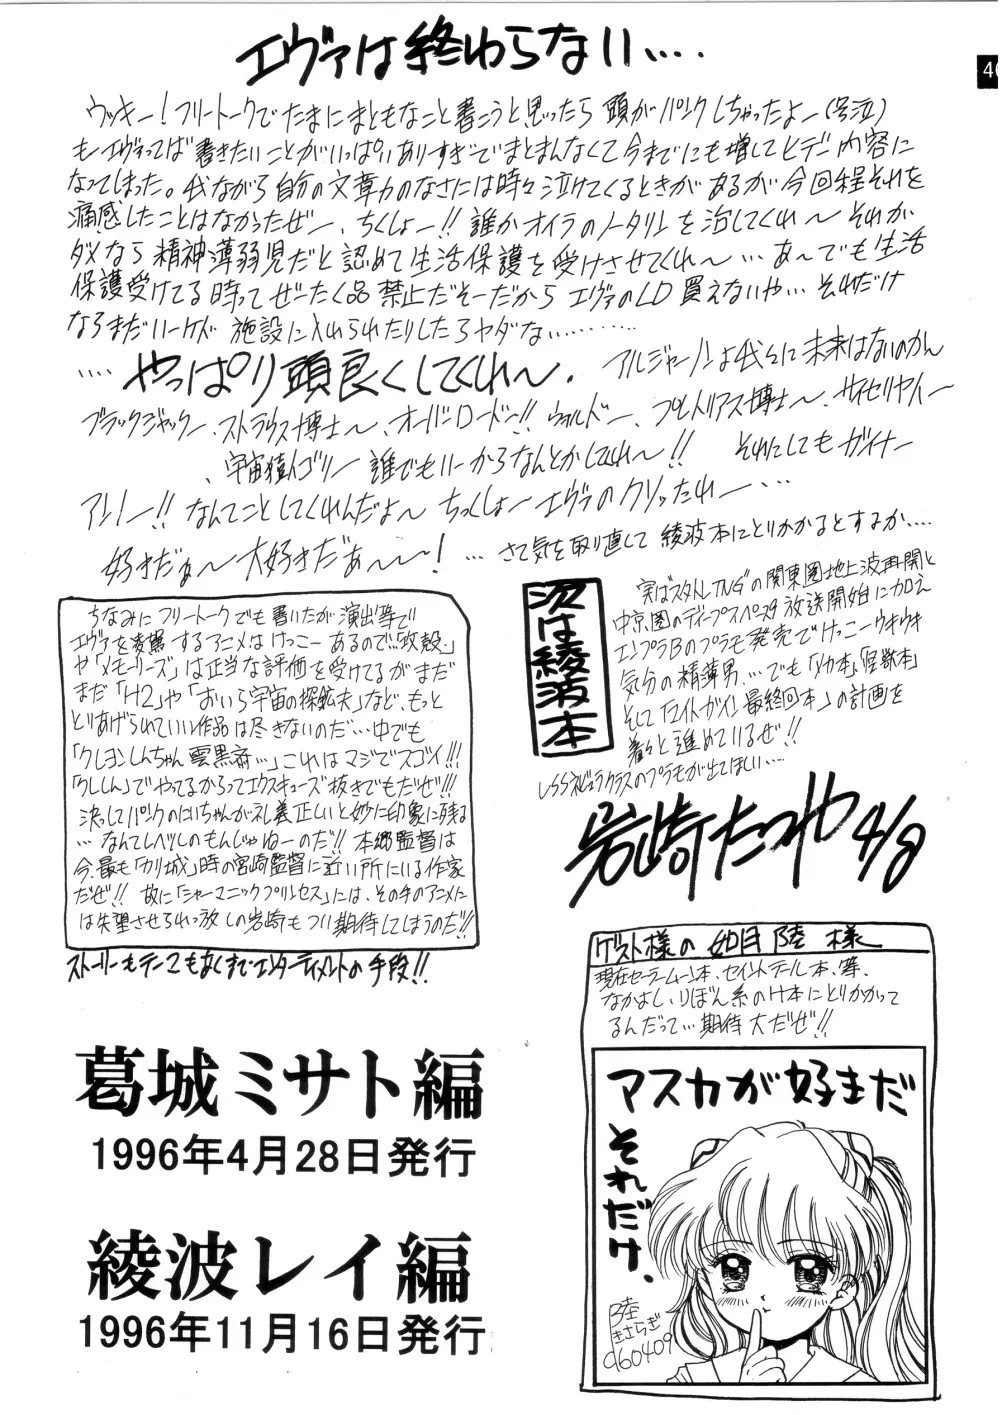 エヴァは終わらない‥‥
46
ウッキー!フリートークでたまにまともなこと書こうと思ったら頭がパンクしちゃったよー(号泣)
もーエヴァってば書きたいことがいっぱいありすぎでまとまんなくて今までにも増してヒデー内容に
なってしまった。我ながら自分の文章力のなさには時々泣けてくるときがあるが今回程それを
痛感したことはなかったぜー、ちくしょー!!誰かオイラのノータリンを治してくれ〜それが
ダメなら精神薄弱児だと認めて生活保護を受けさせてくれ〜…あ〜でも生活
保護受けてる時ってぜーたく品禁止だそーだからエヴァのLD買えないや…それだけ
ならまだいーケド施設に入れられたりしたらヤダな‥‥‥‥
‥‥やっぱり頭良くしてくれ〜.
アルジャーノンよ我々に未来はないのかん
ブラックジャックー、ストラウス博士〜、オーバーロードー!!ウォルドー、プヒトリアス博士〜、サイセリヤイー
、宇宙猿人ゴリー誰でもいーからなんとかしてくれ〜!!
それにしてもガイナー
アンノー!!なんてことしてくれんだよ〜ちっくしょーエヴァのクソったれー‥‥
好きだぁ〜大好きだぁ〜〜!
…さて気を取り直して綾波本にとりかかるとするか‥‥
ちなみにフリートークでも書いたが演出等で
エヴァを凌駕するアニメはけっこーあるので「攻殻」
や「メモリーズ」は正当な評価を受けてるがまだ
まだ「H2」や「おいら宇宙の探鉱夫」など、もっと
とりあげられていい作品は尽きないのだ…中でも
「クレヨンしんちゃん雲黒斎…」これはマジでスゴイ!!!
「クレしん」でやってるからってエクスキューズ抜きでもだぜ!!!
決してパンクのロリちゃんが礼義正しいと妙に印象に残る
…なんてレベルのもんじゃねーのだ!!本郷監督は
今、最も「カリ城」時の宮崎監督に近い所にいる作家
だぜ!!故に「シャーマニックプリンセス」には、その手のアニメに
は失望させられっ放しの岩崎もつい期待してしまうのだ!!
ストーリーもテーマもなくまでエンターティメントの手段!!
次は綾波本
実はスタトレTNGの関東圏地上波再開と
中京圏のディープスペース9放送開始に加え
エンプラBのプラモ発売でけっこーウキウキ
気分の精薄男…でも「リカ本」「怪獣本」
そして「マイトガイン最終回本」の計画を
着々と進めているぜ!!
レンズネビュラクラスのプラモが出てほしい…
岩崎たつや 4/8
ゲスト様の如月陸様
現在セーラームーン本、セイントテール本、等、
なかよし、りぼん系のH本にとりかかって
るんだって…期待大だぜ!!
マスカが好きだ
それだけ.
陸
きさらぎ
960409
葛城ミサト編
1996年4月28日発行
綾波レイ編
1996年11月16日発行